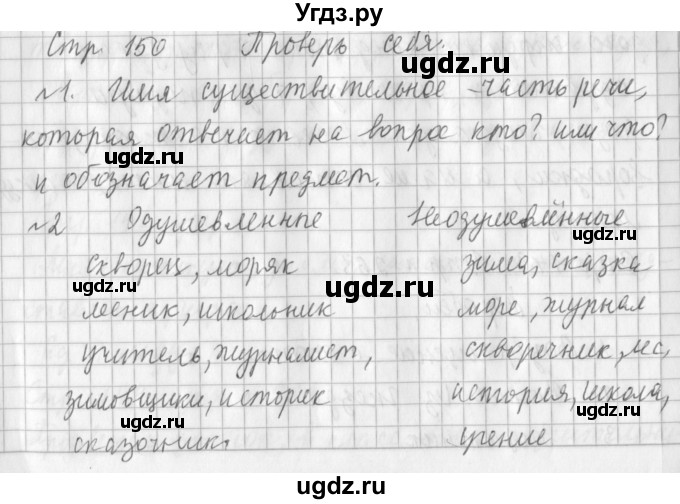 Угдз.ру
Стр. 150 Проверь себя.
№1. Имя существительное - часть речи,
которая отвечает на вопрос кто? или что?
и обозначает предмет.
№2 Одушевленные Неодушевлённые
скворец, моряк зима, сказка
лесник, школьник море, журнал
учитель, журналист, скворечник, лес,
зимовщики, историк история, школа,
сказочник. учение
ugdz.ru
ugdz.ru
ugdz.ru
ugdz.ru
ugdz.ru
ugdz.ru
ugdz.ru
ugdz.ru
ugdz.ru
ugdz.ru
ugdz.ru
ugdz.ru
ugdz.ru